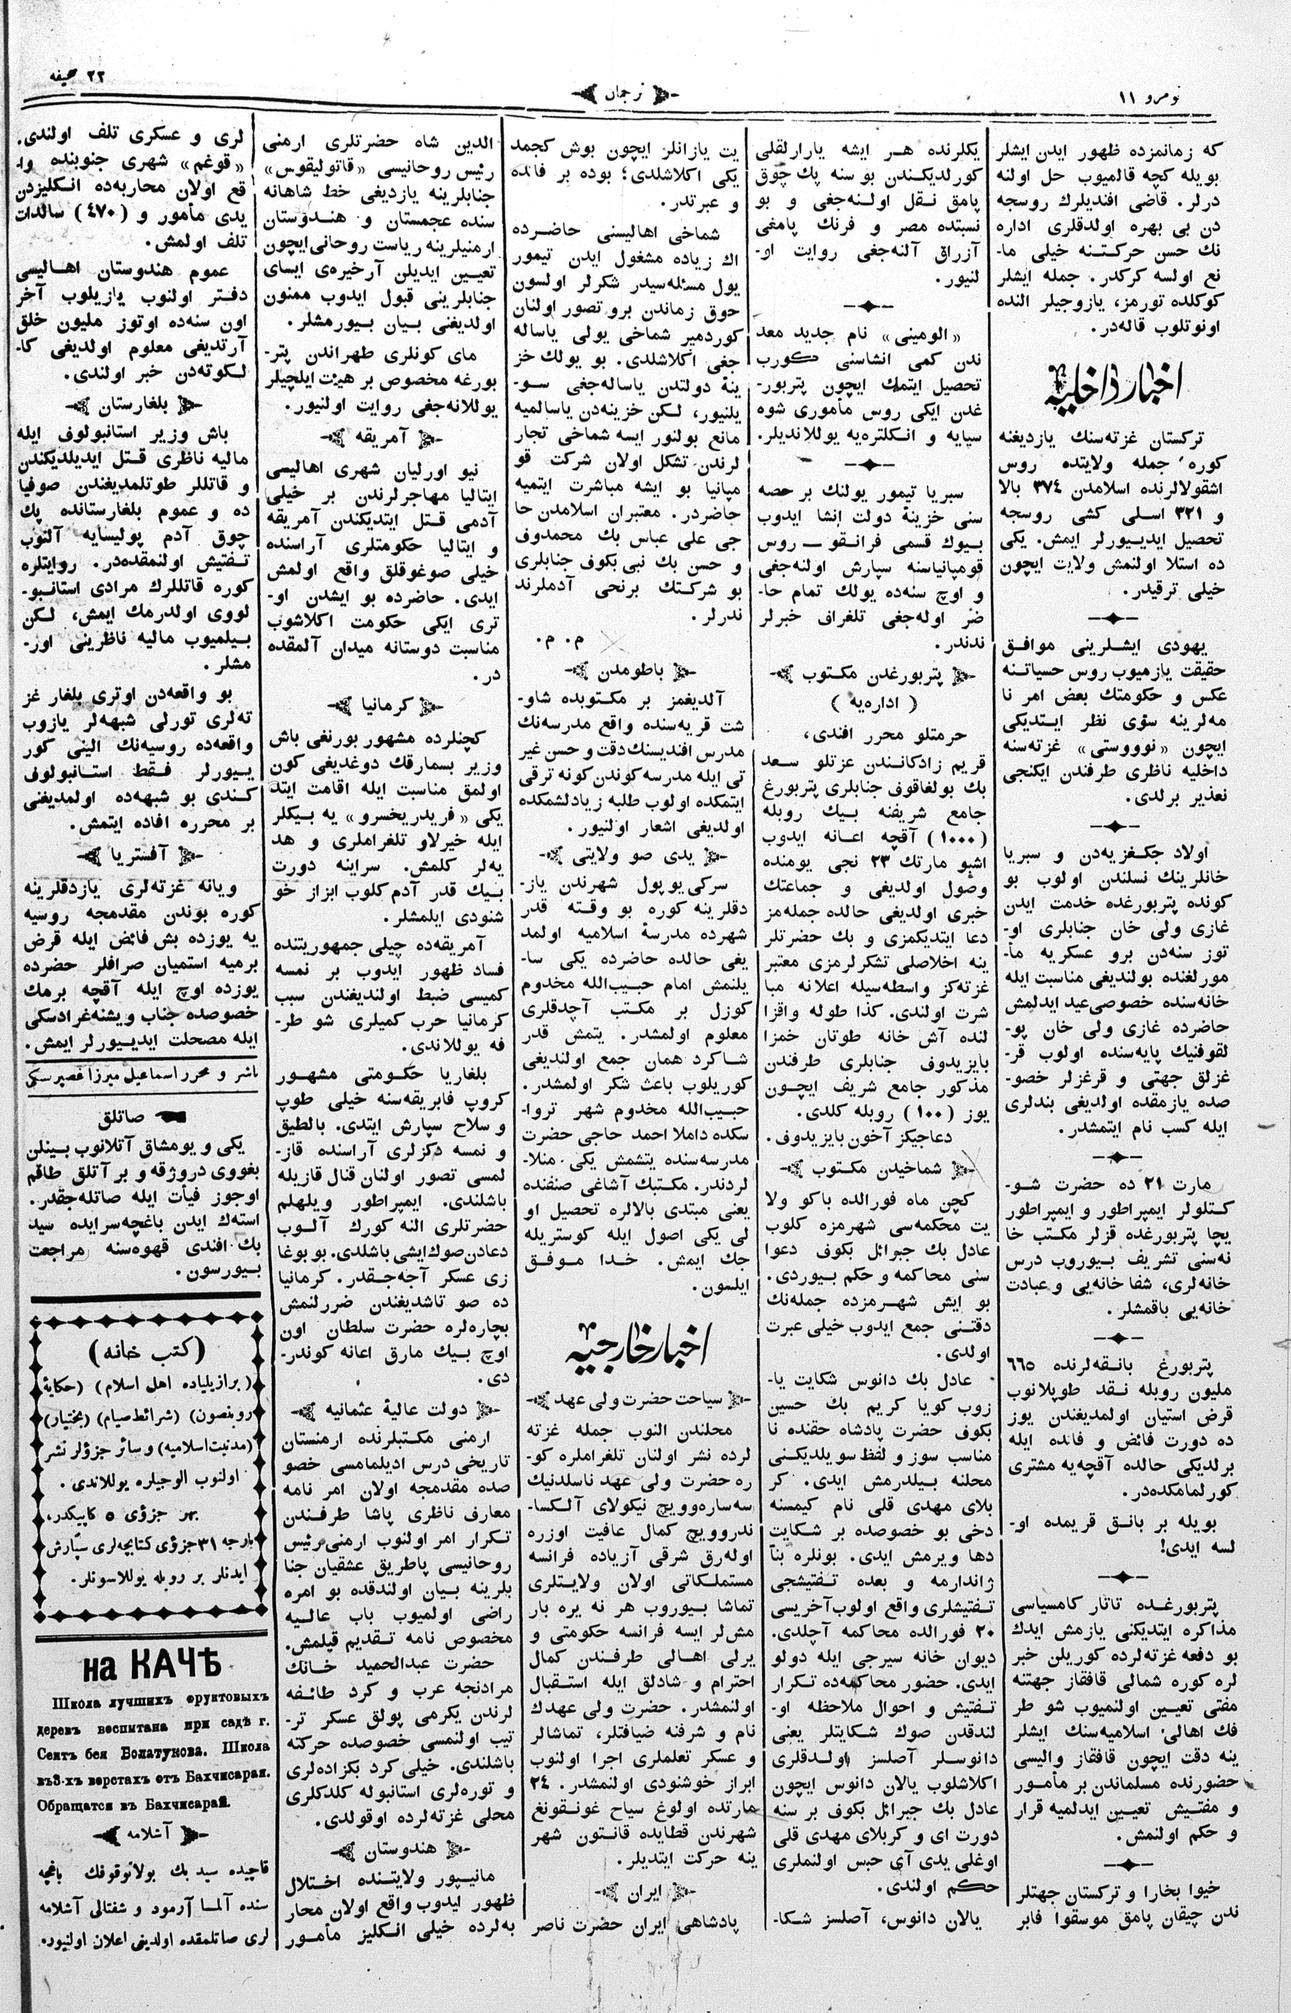 نومرو ١١
ترجمان
٢٢ صحیفه
كه زمانمزده ظهور ایدن ایشلر
بویله كچه قالمیوب حل اولنه
درلر. قاضی افندیلرك روسجه
دن بی بهره اولدقلری اداره
نك حسن حركتنه خیلی ما-
نع اولسه كركدر. جمله ایشلر
كوكلده تورمز، یازوجیلر النده
اونوتلوب قاله‌در.
اخبار داخلیه
تركستان غزته‌سنك یازدیغنه
كوره جمله ولایتده روس
اشقولالرنده اسلامدن ٣٧٤ بالا
و ٣٢١ اسلی كشی روسجه
تحصیل ایدییورلر ایمش. یكی
ده استلا اولنمش ولایت ایچون
خیلی ترقیدر.
یهودی ایشلرینی موافق
حقیقت یازمیوب روس حسیاتنه
عكس و حكومتك بعض امر نا
مه‌لرینه سؤی نظر ایتدیكی
ایچون «نووستی» غزته‌سنه
داخلیه ناظری طرفندن ایكنجی
تعذیر برلدی.
اولاد جنكغزیه‌دن و سبریا
خانلرینك نسلندن اولوب بو
كونده پتربورغده خدمت ایدن
غازی ولی خان جنابلری او-
توز سنه‌دن برو عسكریه مأ-
مورلغنده بولندیغی مناسبت ایله
خانه‌سنده خصوصی عید ایدلمش
حاضرده غازی ولی خان پو-
لقوفنیك پایه‌سنده اولوب قر-
غزلق جهتی و قرغزلر خصو-
صده یازمقده اولدیغی بندلری
ایله كسب نام ایتمشدر.
مارت ٢١ ده حضرت شو-
كتلولر ایمپراطور و ایمپراطور
یچا پتربورغده قزلر مكتب خا
نه‌سنی تشریف بیوروب درس
خانه‌لری، شفا خانه‌یی و عبادت
خانه‌یی باقمشلر.
پتربورغ بانقه‌لرنده ٦٦٥
ملیون روبله نقد طوپلانوب
قرض استیان اولمدیغندن یوز
ده دورت فائض و فائده ایله
برلدیكی حالده آقچه‌یه مشتری
كورلمامكده‌در.
بویله بر بانق قریمده او-
لسه ایدی!
پتربورغده تاتار كامسیاسی
مذاكره ایتدیكنی یازمش ایدك
بو دفعه غزته‌لرده كوریلن خبر
لره كوره شمالی قافقاز جهتنه
مفتی تعیین اولنمیوب شو طر
فك اهالی اسلامیه‌سنك ایشلر
ینه دقت ایچون قافقاز والیسی
حضورنده مسلماندن بر مأمور
و مفتیش تعیین ایدلمیه قرار
و حكم اولنمش.
خیوا بخارا و تركستان جهتلر
ندن چیقان پامق موسقوا فابر
یكلرنده هر ایشه یارارلقلی
كورلدیكندن بو سنه پك چوق
پامق نقل اولنه‌جغی و بو
نسبتده مصر و فرنك پامغی
آزراق آلنه‌جغی روایت او-
لنیور.
«الومینی» نام جدید معد
ندن كمی انشاسنی كورب
تحصیل ایتمك ایچون پتربور-
غدن ایكی روس مأموری شوه
سیایه و انكلتره‌یه یوللاندیلر.
سبریا تیمور یولنك بر حصه
سنی خزینهٔ دولت انشا ایدوب
بیوك قسمی فرانقو — روس
قومپانیاسنه سپارش اولنه‌جغی
و اوچ سنه‌ده یولك تمام حا-
ضر اوله‌جغی تلغراف خبرلر
ندندر.
پتربورغدن مكتوب
( اداره‌یه )
حرمتلو محرر افندی،
قریم زادكانندن عزتلو سعد
بك بولغاقوف جنابلری پتربورغ
جامع شریفنه بیك روبله
(١٠٠٠) آقچه اعانه ایدوب
اشبو مارتك ٢٣ نجی یومنده
وصول اولدیغی و جماعتك
خبری اولدیغی حالده جمله‌مز
دعا ایتدیكمزی و بك حضرتلر
ینه اخلاصلی تشكرلرمزی معتبر
غزته‌كز واسطه‌سیله اعلانه مبا
شرت اولندی. كذا طوله واقزا
لنده آش خانه طوتان خمزا
بایزیدوف جنابلری طرفندن
مذكور جامع شریف ایچون
یوز (١٠٠) روبله كلدی.
دعاجیكز آخون بایزیدوف.
شماخیدن مكتوب
كچن ماه فورالده باكو ولا
یت محكمه‌سی شهرمزه كلوب
عادل بك جبرائل بكوف دعوا
سنی محاكمه و حكم بیوردی.
بو ایش شهرمزده جمله‌نك
دقتنی جمع ایدوب خیلی عبرت
اولدی.
عادل بك دانوس شكایت یا-
زوب كویا كریم بك حسین
بكوف حضرت پادشاه حقنده نا
مناسب سوز و لفظ سویلدیكنی
محلنه بیلدرمش ایدی. كر
بلای مهدی قلی نام كیمسنه
دخی بو خصوصده بر شكایت
دها ویرمش ایدی. بونلره بنأ
ژاندارمه و بعده تفتیشجی
تفتیشلری واقع اولوب آخریسی
٢٠ فورالده محاكمه آچلدی.
دیوان خانه سیرجی ایله دولو
ایدی. حضور محاكمه‌ده تكرار
تفتیش و احوال ملاحظه او-
لندقدن صوك شكایتلر یعنی
دانوسلر آصلسز اولدقلری
اكلاشلوب یالان دانوس ایچون
عادل بك جبرائل بكوف بر سنه
دورت ای و كربلای مهدی قلی
اوغلی یدی آی حبس اولنملری
حكم اولندی.
یالان دانوس، آصلسز شكا-
یت یازانلر ایچون بوش كچمد
یكی اكلاشلدی؛ بوده بر فائده
و عبرتدر.
شماخی اهالیسنی حاضرده
اك زیاده مشغول ایدن تیمور
یول مسئله‌سیدر شكرلر اولسون
چوق زماندن برو تصور اولنان
كوردمیر شماخی یولی یاساله
جغی اكلاشلدی. بو یولك خز
ینهٔ دولتدن یاساله‌جغی سو-
یلنیور، لكن خزینه‌دن یاسالمیه
مانع بولنور ایسه شماخی تجار
لرندن تشكل اولان شركت قو
مپانیا بو ایشه مباشرت ایتمیه
حاضردر. معتبران اسلامدن حا
جی علی عباس بك محمدوف
و حسن بك نبی بكوف جنابلری
بو شركتك برنجی آدملرند
ندرلر.
م. م.
باطومدن
آلدیغمز بر مكتوبده شاو-
شت قریه‌سنده واقع مدرسه‌نك
مدرس افندیسنك دقت و حسن غیر
تی ایله مدرسه كوندن كونه ترقی
ایتمكده اولوب طلبه زیادلشمكده
اولدیغی اشعار اولنیور.
یدی صو ولایتی
سركی یوپول شهرندن یاز-
دقلرینه كوره بو وقته قدر
شهرده مدرسهٔ اسلامیه اولمد
یغی حالده حاضرده یكی سا-
یلنمش امام حبیب‌الله مخدوم
كوزل بر مكتب آچدقلری
معلوم اولمشدر. یتمش قدر
شاكرد همان جمع اولندیغی
كوریلوب باعث شكر اولمشدر.
حبیب‌الله مخدوم شهر تروا-
سكده داملا احمد حاجی حضرت
مدرسه‌سنده یتشمش یكی منلا-
لردندر. مكتبك آشاغی صنفنده
یعنی مبتدی بالالره تحصیل او
لی یكی اصول ایله كوستریله
جك ایمش. خدا موفق
ایلسون.
اخبار خارجیه
سیاحت حضرت ولی عهد
محلندن النوب جمله غزته
لرده نشر اولنان تلغراملره كو-
ره حضرت ولی عهد ناسلدنیك
سه‌ساره‌وویچ نیكولای آلكسا-
ندروویچ كمال عافیت اوزره
اوله‌رق شرقی آزیاده فرانسه
مستملكاتی اولان ولایتلری
تماشا بیوروب هر نه یره بار
مش‌لر ایسه فرانسه حكومتی و
یرلی اهالی طرفندن كمال
احترام و شادلق ایله استقبال
اولنمشدر. حضرت ولی عهدك
نام و شرفنه ضیافتلر، تماشالر
و عسكر تعلملری اجرا اولنوب
ابراز خوشنودی اولنمشدر. ٢٤
مارتده اولوغ سیاح غونقونغ
شهرندن قطایده قانتون شهر
ینه حركت ایتدیلر.
ایران
پادشاهی ایران حضرت ناصر
الدین شاه حضرتلری ارمنی
رئیس روحانیسی «قاتولیقوس»
جنابلرینه یازدیغی خط شاهانه
سنده عجمستان و هندوستان
ارمنیلرینه ریاست روحانی ایچون
تعیین ایدیلن آرخیره‌ی ایسای
جنابلرینی قبول ایدوب ممنون
اولدیغنی بیان بیورمشلر.
مای كونلری طهراندن پتر-
بورغه مخصوص بر هیئت ایلچیلر
یوللانه‌جغی روایت اولنیور.
آمریقه
نیو اورلیان شهری اهالیسی
ایتالیا مهاجرلرندن بر خیلی
آدمی قتل ایتدیكندن آمریقه
و ایتالیا حكومتلری آراسنده
خیلی صوغوقلق واقع اولمش
ایدی. حاضرده بو ایشدن او-
تری ایكی حكومت اكلاشوب
مناسبت دوستانه میدان آلمقده
در.
كرمانیا
كچنلرده مشهور بورنغی باش
وزیر بسمارقك دوغدیغی كون
اولمق مناسبت ایله اقامت ایتد
یكی «فریدریخسرو» یه بیكلر
ایله خیرلاو تلغراملری و هد
یه‌لر كلمش. سراینه دورت
بیك قدر آدم كلوب ابراز خو
شنودی ایلمشلر.
آمریقه‌ده چیلی جمهوریتنده
فساد ظهور ایدوب بر نمسه
كمیسی ضبط اولندیغندن سبب
كرمانیا حرب كمیلری شو طر-
فه یوللاندی.
بلغاریا حكومتی مشهور
كروپ فابریقه‌سنه خیلی طوپ
و سلاح سپارش ایتدی. بالطیق
و نمسه دكزلری آراسنده قاز-
لمسی تصور اولنان قنال قازیله
باشلندی. ایمپراطور ویلهلم
حضرتلری النه كورك آلوب
دعادن صوك ایشی باشلدی. بو بوغا
زی عسكر آجه‌جقدر. كرمانیا
ده صو تاشدیغندن ضررلنمش
بچاره‌لره حضرت سلطان اون
اوچ بیك مارق اعانه كوندر-
دی.
دولت عالیهٔ عثمانیه
ارمنی مكتبلرنده ارمنستان
تاریخی درس ادیلمامسی خصو
صده مقدمجه اولان امر نامه
معارف ناظری پاشا طرفندن
تكرار امر اولنوب ارمنی رئیس
روحانیسی پاطریق عشقیان جنا
بلرینه بیان اولندقده بو امره
راضی اولمیوب باب عالیه
مخصوص نامه تقدیم قیلمش.
حضرت عبدالحمید خانك
مرادنجه عرب و كرد طائفه
لرندن یكرمی پولق عسكر تر-
تیب اولنمسی خصوصده حركته
باشلندی. خیلی كرد بكزاده‌لری
و توره‌لری استانبوله كلدكلری
محلی غزته‌لرده اوقولدی.
هندوستان
مانیپور ولایتنده اختلال
ظهور لیدوب واقع اولان محار
به‌لرده خیلی انكلیز مأمور
لری و عسكری تلف اولندی.
«قوغم» شهری جنوبنده وا-
قع اولان محاربه‌ده انكلیزدن
یدی مأمور و (٤٧٠) سالدات
تلف اولمش.
عموم هندوستان اهالیسی
دفتر اولنوب یازیلوب آخر
اون سنه‌ده اوتوز ملیون خلق
آرتدیغی معلوم اولدیغی كا-
لكوته‌دن خبر اولندی.
بلغارستان
باش وزیر استانبولوف ایله
مالیه ناظری قتل ایدیلدیكندن
و قاتللر طوتلمدیغندن صوفیا
ده و عموم بلغارستانده پك
چوق آدم پولیسایه آلنوب
تفتیش اولنمقده‌در. روایتلره
كوره قاتللرك مرادی استانبو-
لووی اولدرمك ایمش، لكن
بیلمیوب مالیه ناظرینی اور-
مشلر.
بو واقعه‌دن اوتری بلغار غز
ته‌لری تورلی شبهه‌لر یازوب
واقعه‌ده روسیه‌نك الینی كور
یییورلر فقط استانبولوف
كندی بو شبهه‌ده اولمدیغنی
بر محرره افاده ایتمش.
آفستریا
ویانه غزته‌لری یازدقلرینه
كوره بوندن مقدمجه روسیه
یه یوزده بش فائض ایله قرض
برمیه استمیان صرافلر حضرده
یوزده اوچ ایله آقچه برمك
خصوصده جناب ویشنه‌غرادسكی
ایله مصحلت ایدییورلر ایمش.
ناشر و محرر اسماعیل میرزا غصپرنسكی
صاتلق
یكی و یومشاق آتلانوب بینلن
بغووی دروژقه و بر آتلق طاقم
اوجوز فیأت ایله صاتله‌جقدر.
استه‌ك ایدن باغچه‌سرایده سید
بك افندی قهوه‌سنه مراجعت
بیورسون.
(كتب خانه)
(برازیلیاده اهل اسلام) (حكایهٔ
روبنصون) (شرائط صیام) (بختیار)
(مدنیت اسلامیه) و سائر جزؤلر نشر
اولنوب الوجیلره یوللاندی.
بهر جزؤی ٥ كاپیكدر،
بارجه ٣١ جزؤی كتابچه‌لری سپارش
ایدنلر بر روبله یوللاسونلر.
на КАЧѢ
Школа лучшихъ фруктовыхъ
деревъ воспитана при садѣ г.
Сеитъ бея Болатукова. Школа
въ 3-хъ верстахъ отъ Бахчисарая.
Обращатся въ Бахчисарай.
آشلامه
قاچیده سید بك بولاتوقوفك باغچه
سنده آلما آرمود و شفتالی آشلامه
لری صاتلمقده اولدینی اعلان اولنیور.